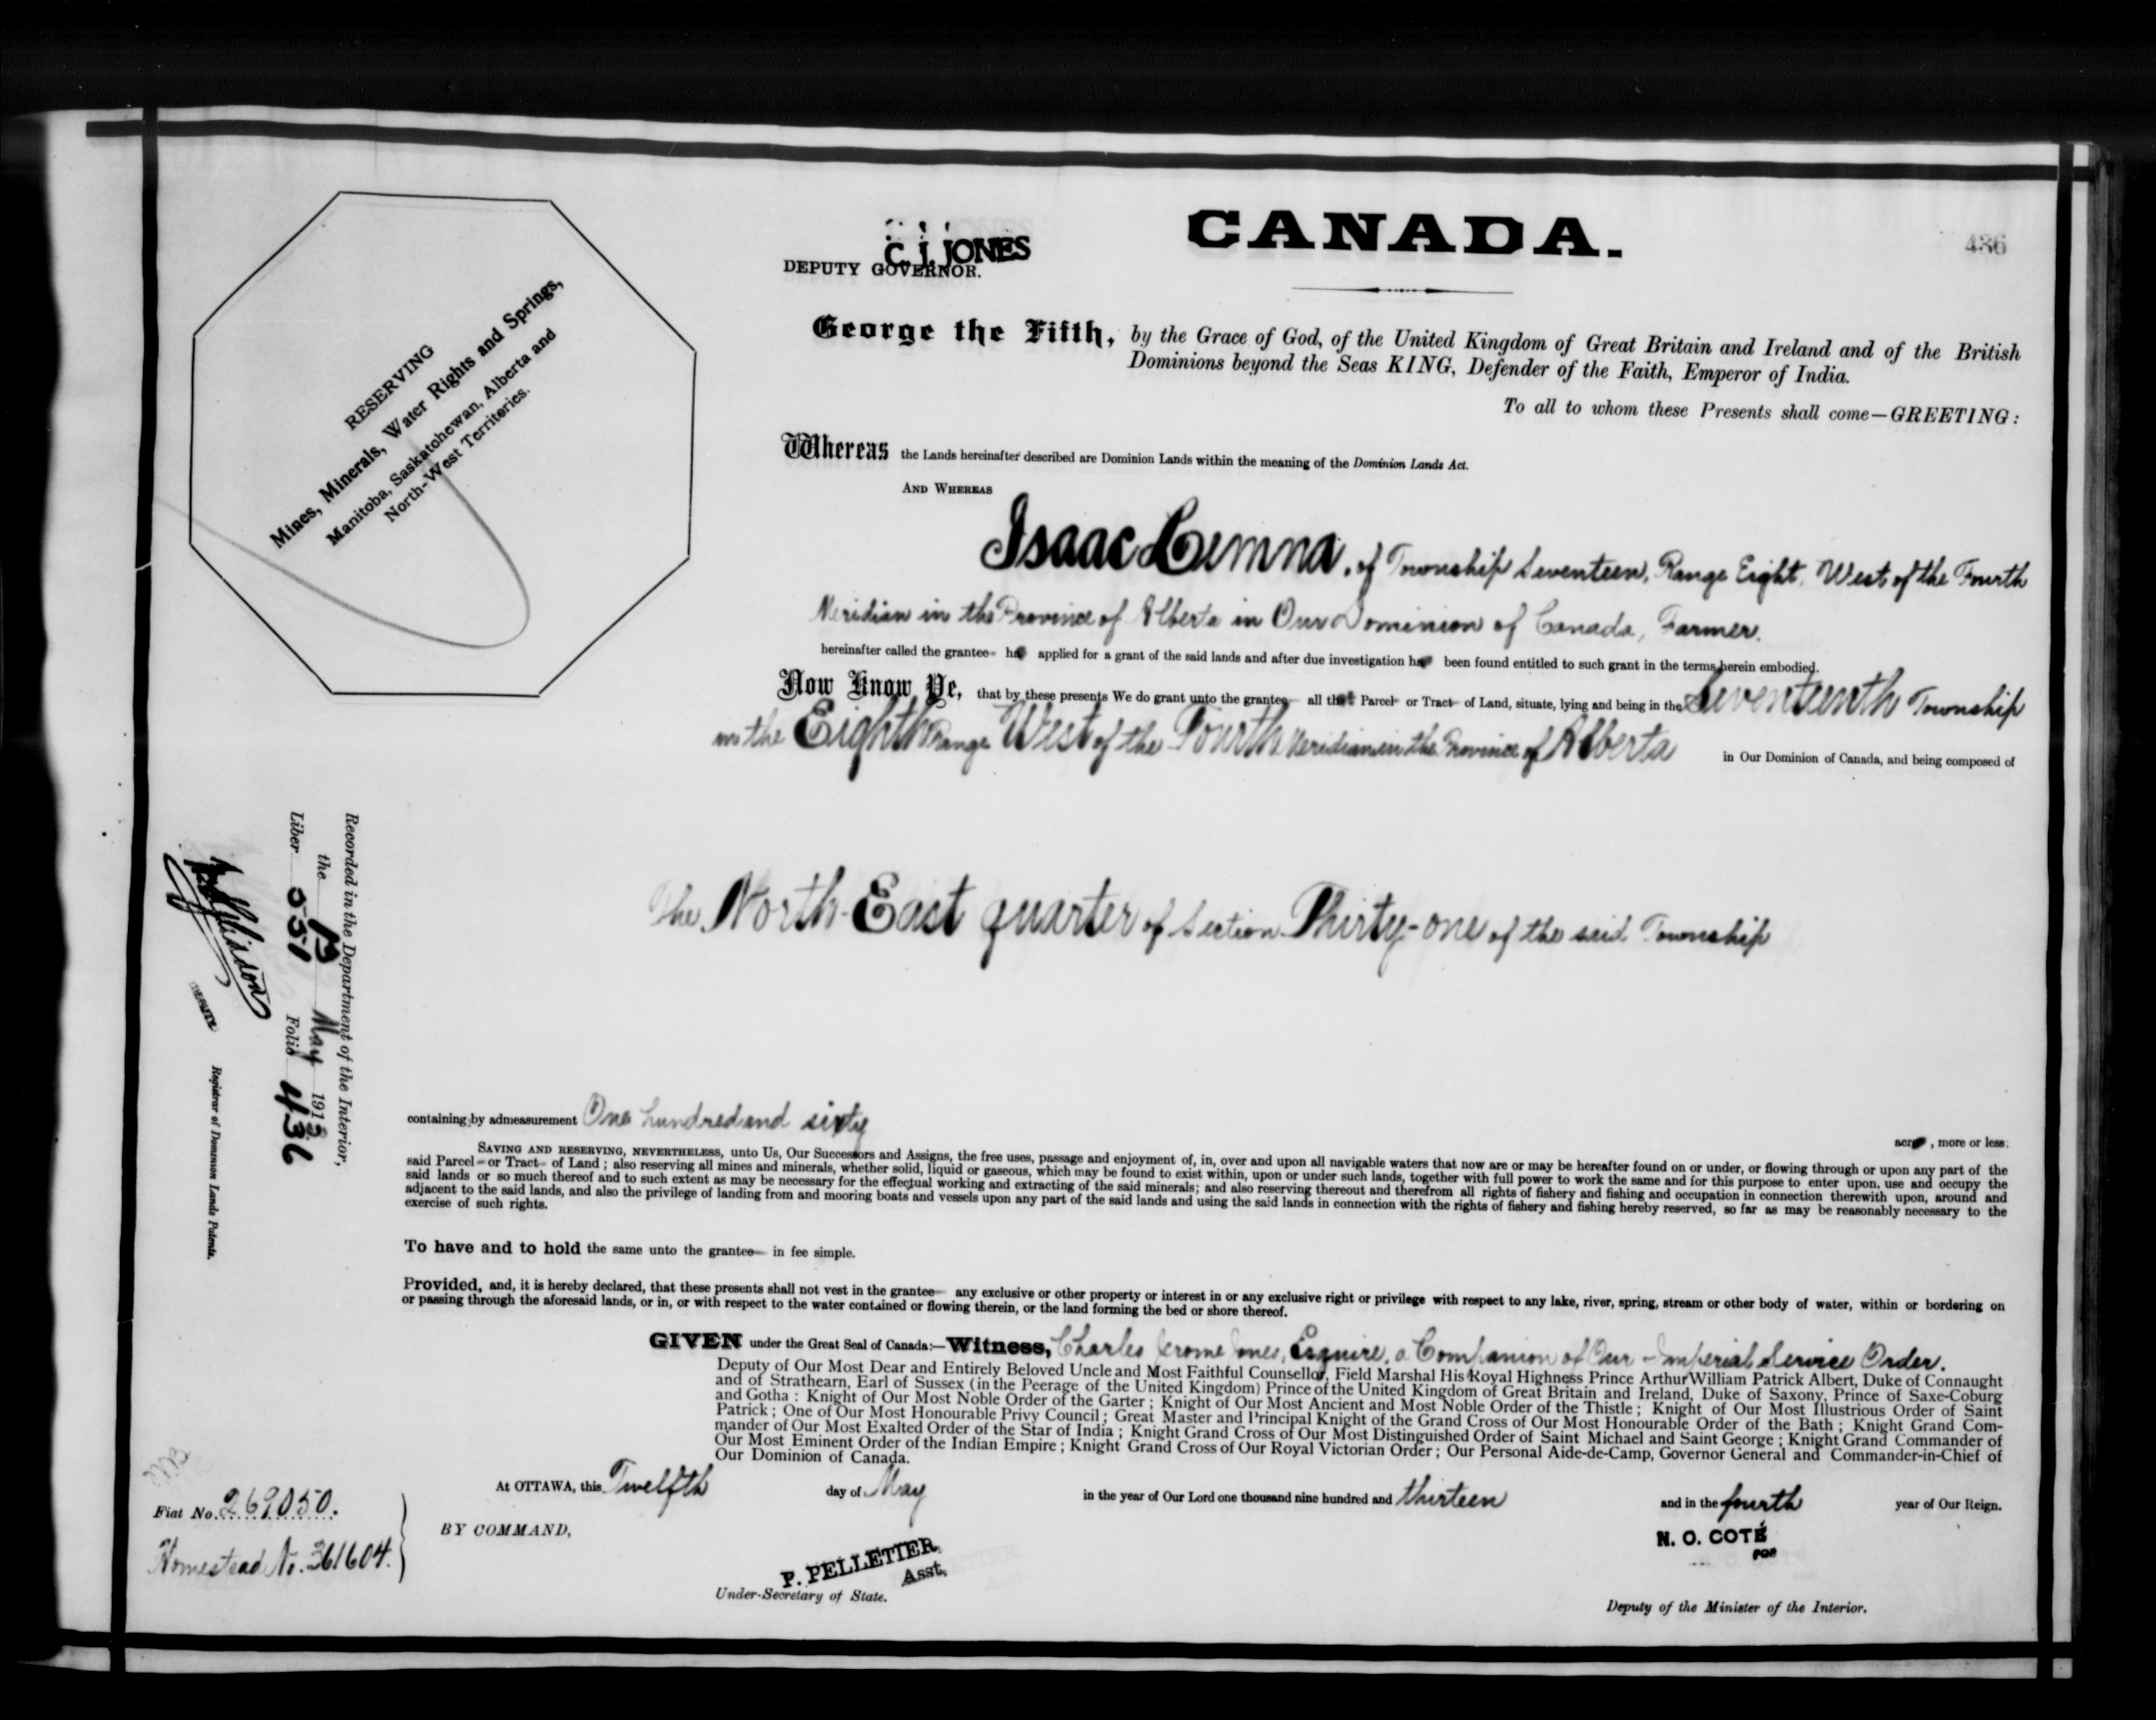 436
CANADA.
C. J. JONES
DEPUTY GOVERNOR.
George the Fifth, by the Grace of God, of the United Kingdom of Great Britain and Ireland and of the British
Dominions beyond the Seas KING, Defender of the Faith, Emperor of India.
To all to whom these Presents shall come—GREETING:
RESERVING
Mines, Minerals, Water Rights and Springs,
Manitoba, Saskatchewan, Alberta and
North-West Territories.
Whereas the Lands hereinafter described are Dominion Lands within the meaning of the Dominion Lands Act.
AND WHEREAS
Isaac Lemna, of Township Seventeen, Range Eight, West of the Fourth
Meridian in the Province of Alberta in Our Dominion of Canada, Farmer.
hereinafter called the grantee ha applied for a grant of the said lands and after due investigation ha been found entitled to such grant in the terms herein embodied.
Now Know Ye, that by these presents We do grant unto the grantee all that Parcel or Tract of Land, situate, lying and being in the Seventeenth Township
in the Eighth Range West of the Fourth Meridian in the Province of Alberta in Our Dominion of Canada, and being composed of
The North-East quarter of Section Thirty-one of the said Township
Recorded in the Department of the Interior,
the 13 May 1913
Liber 551 Folio 436
DEPUTY
Registrar of Dominion Lands Patents.
containing by admeasurement One hundred and sixty acre, more or less:
SAVING AND RESERVING, NEVERTHELESS, unto Us, Our Successors and Assigns, the free uses, passage and enjoyment of, in, over and upon all navigable waters that now are or may be hereafter found on or under, or flowing through or upon any part of the
said Parcel or Tract of Land; also reserving all mines and minerals, whether solid, liquid or gaseous, which may be found to exist within, upon or under such lands, together with full power to work the same and for this purpose to enter upon, use and occupy the
said lands or so much thereof and to such extent as may be necessary for the effectual working and extracting of the said minerals; and also reserving thereout and therefrom all rights of fishery and fishing and occupation in connection therewith upon, around and
adjacent to the said lands, and also the privilege of landing from and mooring boats and vessels upon any part of the said lands and using the said lands in connection with the rights of fishery and fishing hereby reserved, so far as may be reasonably necessary to the
exercise of such rights.
To have and to hold the same unto the grantee in fee simple.
Provided, and, it is hereby declared, that these presents shall not vest in the grantee any exclusive or other property or interest in or any exclusive right or privilege with respect to any lake, river, spring, stream or other body of water, within or bordering on
or passing through the aforesaid lands, or in, or with respect to the water contained or flowing therein, or the land forming the bed or shore thereof.
GIVEN under the Great Seal of Canada:—Witness, Charles Jerome Jones, Esquire, a Companion of Our Imperial Service Order.
Deputy of Our Most Dear and Entirely Beloved Uncle and Most Faithful Counsellor, Field Marshal His Royal Highness Prince Arthur William Patrick Albert, Duke of Connaught
and of Strathearn, Earl of Sussex (in the Peerage of the United Kingdom) Prince of the United Kingdom of Great Britain and Ireland, Duke of Saxony, Prince of Saxe-Coburg
and Gotha: Knight of Our Most Noble Order of the Garter; Knight of Our Most Ancient and Most Noble Order of the Thistle; Knight of Our Most Illustrious Order of Saint
Patrick; One of Our Most Honourable Privy Council; Great Master and Principal Knight of the Grand Cross of Our Most Honourable Order of the Bath; Knight Grand Com-
mander of Our Most Exalted Order of the Star of India; Knight Grand Cross of Our Most Distinguished Order of Saint Michael and Saint George; Knight Grand Commander of
Our Most Eminent Order of the Indian Empire; Knight Grand Cross of Our Royal Victorian Order; Our Personal Aide-de-Camp, Governor General and Commander-in-Chief of
Our Dominion of Canada.
At OTTAWA, this Twelfth day of May in the year of Our Lord one thousand nine hundred and thirteen and in the fourth year of Our Reign.
Fiat No. 269050.
Homestead No. 361604.
BY COMMAND,
P. PELLETIER
Asst.
Under-Secretary of State.
N. O. COTÉ
FOR
Deputy of the Minister of the Interior.